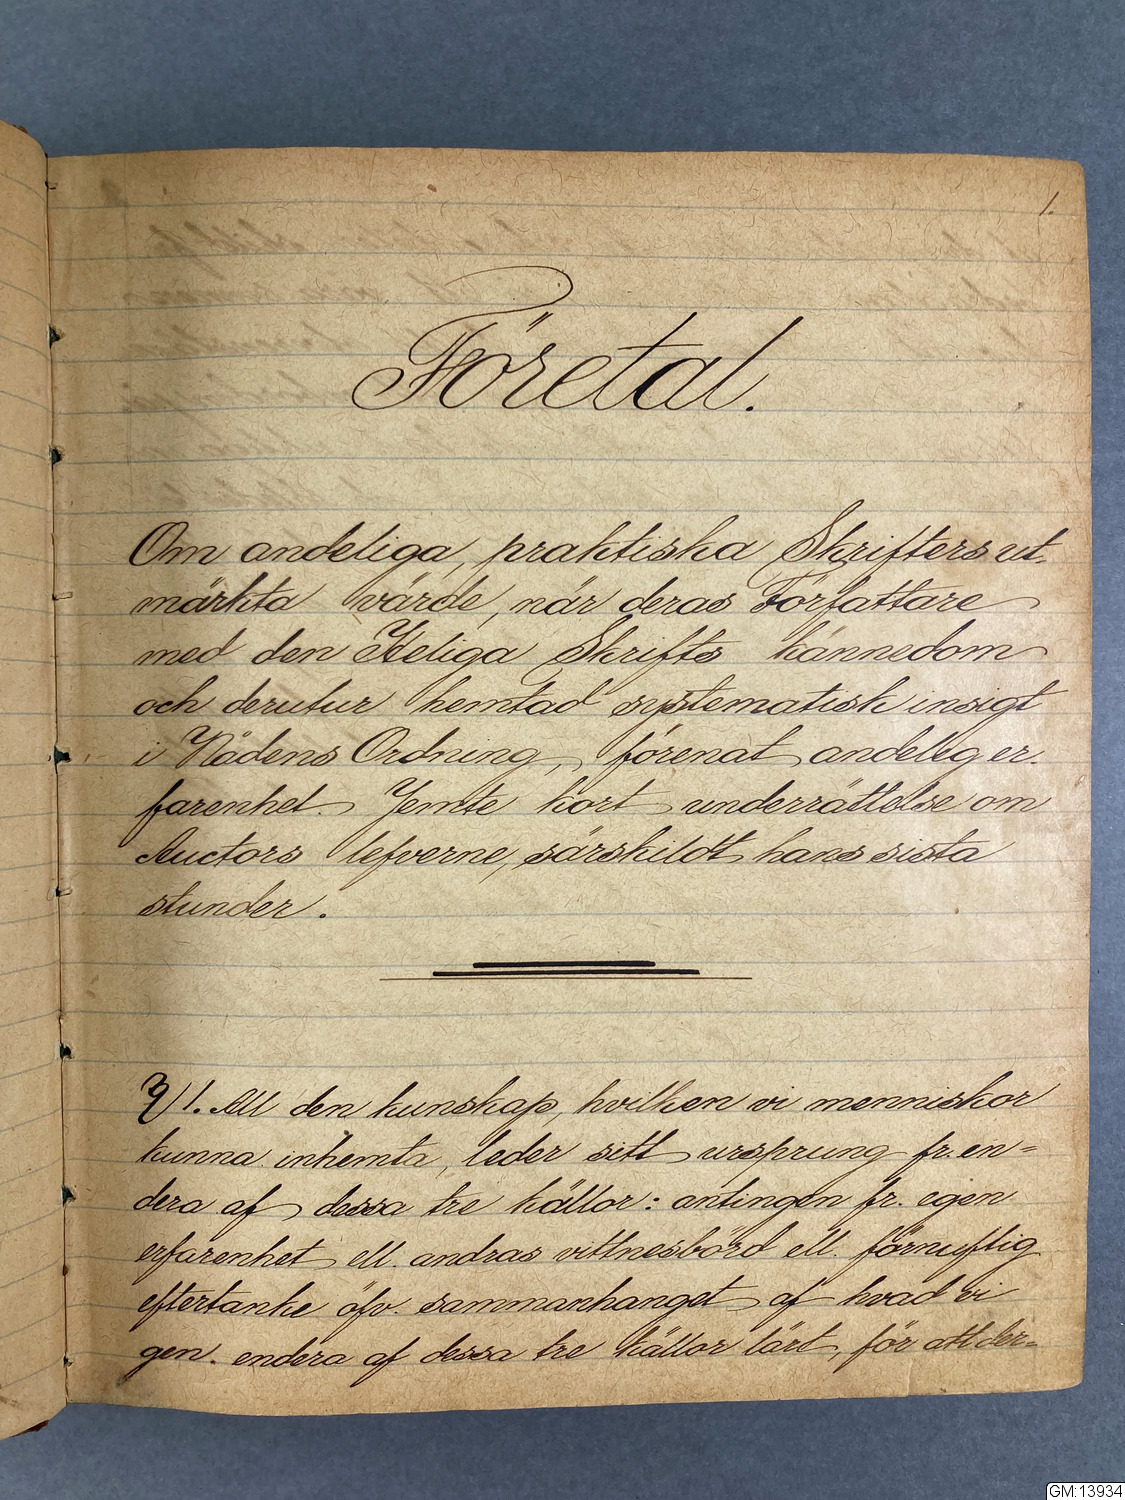 1.
Företal.
Om andeliga, praktiska Skrifters ut-
märkta värde, när deras Författare
med den Heliga Skrifts kännedom
och derutur hemtad systematisk insigt
i Nådens Ordning, förenat andelig er-
farenhet. Jemte kort underrättelse om
Auctors lefverne, särskildt hans sista
stunder.
1. All den kunskap, hvilken vi menniskor
kunna inhemta, leder sitt ursprung fr. en=
dera af dessa tre källor: antingen fr. egen
erfarenhet ell. andras vittnesbörd ell. förnuftig
eftertanke öfv. sammanhanget af hvad vi
gen. endera af dessa tre källor lärt, för att der=
GM:13934